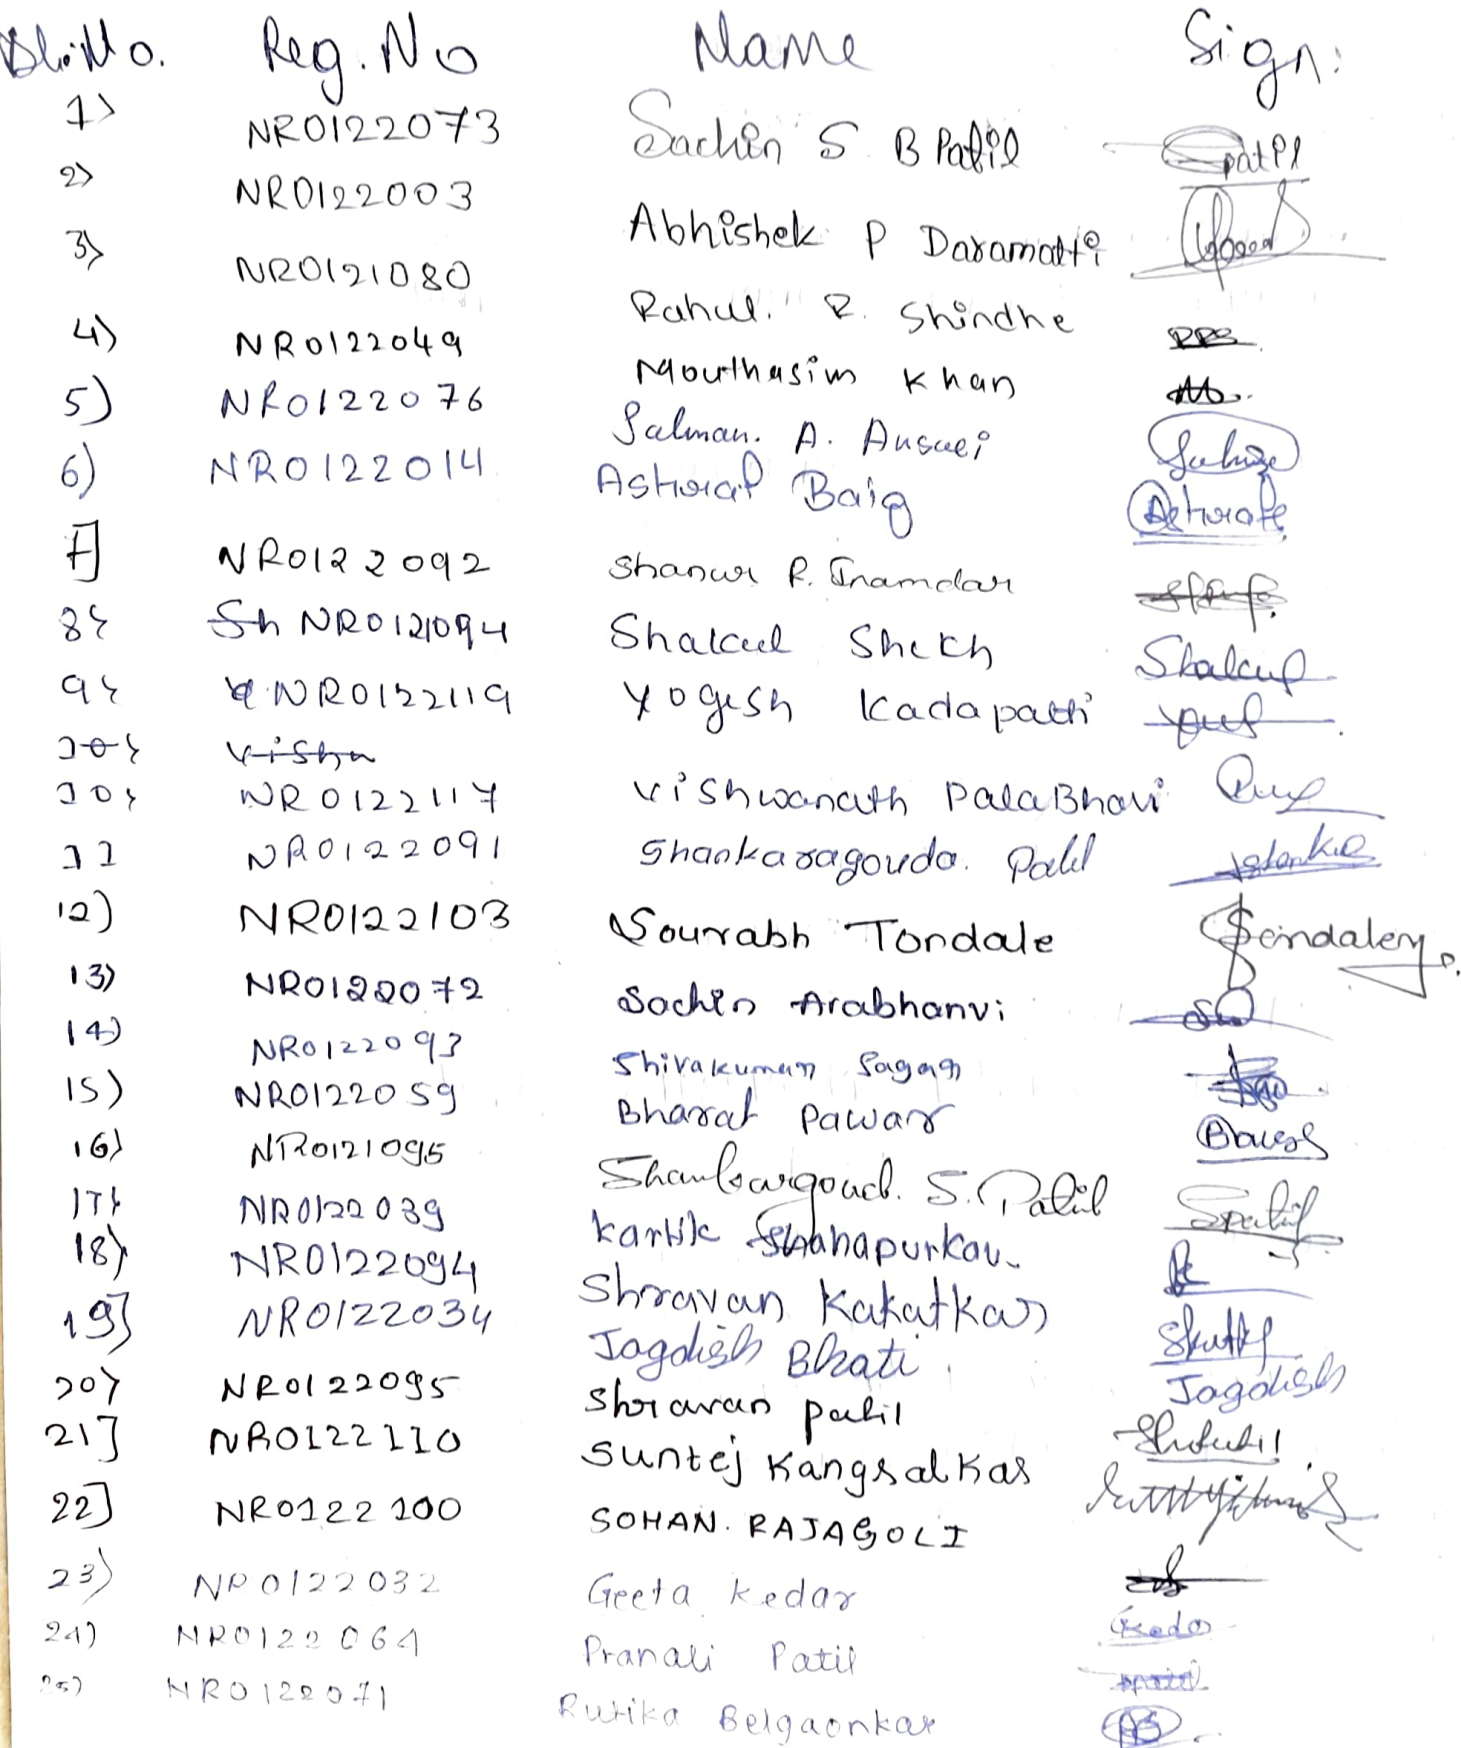 Sl.No. Reg. No Name Sign:
1) NR0122073 Sachin S B Patil Spatil
2) NR0122003 Abhishek P Daramatti
3) NR0121080 Rahul. R. Shindhe RRS
4) NR0122049 Mouthasim Khan
5) NR0122076 Salman. A. Ansari
6) NR0122014 Ashraf Baig Ashraf
7] NR0122092 Shanur R. Inamdar
8} Sh NR0121094 Shakeel Shekh
9} NR0122119 Yogesh Kadapatti
10} Visha
10} NR0122117 Vishwanath PalaBhavi
11 NR0122091 Shankaragouda. Patil
12) NR0122103 Sourabh Tondale
13) NR0122072 Sachin Arabhanvi
14) NR0122093 Shivakumar Sagar
15) NR0122059 Bharat Pawar
16) NR0121095 Shankargoud. S. Patil Spatil
17} NR0122039 Kartik Shahapurkar
18) NR0122094 Shravan Kakatkar
19] NR0122034 Jagdish Bhati Jagdish
20} NR0122095 Shravan patil
21] NR0122110 Suntej Kangralkar
22] NR0122100 SOHAN. RAJAGOLI
23) NR0122032 Geeta Kedar
24) NR0122064 Pranali Patil
25) NR0122071 Rutika Belgaonkar RB